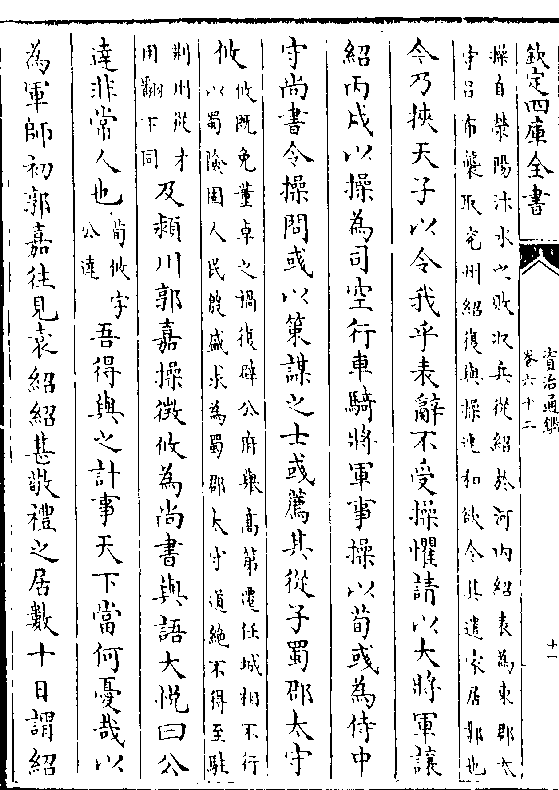 欽定四庫全書
資治通鑑
卷六十二
十一
操自滎陽汴水之敗收兵從紹於河内紹表為東郡太
守吕布襲取兖州紹復與操連和欲令其遣家居鄴也
令乃挾天子以令我乎表辭不受操懼請以大將軍讓
紹丙戌以操為司空行車騎將軍事操以荀彧為侍中
守尚書令操問彧以策謀之士彧薦其從子蜀郡太守
攸
攸既免董卓之禍復辟公府舉高第遷任城相不行
以蜀險固人民殷盛求為蜀郡太守道絶不得至駐
荆州從才
用翻下同
及潁川郭嘉操徵攸為尚書與語大悦曰公
達非常人也
荀攸字
公達
吾得與之計事天下當何憂哉以
為軍師初郭嘉往見袁紹紹甚敬禮之居數十日謂紹